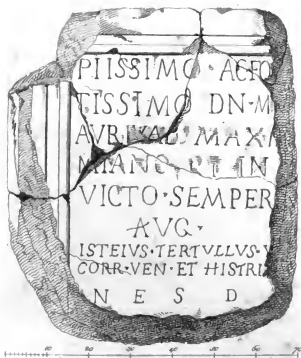 PIISSIMO · AC FO
TISSIMO DN · M
AVR VAL MAXI
MIANO ET IN
VICTO · SEMPER
AVG ·
ISTEIVS · TERTVLLVS · V
CORR · VEN · ET HISTRI
N E S D
10 20 30 40 50 60 70